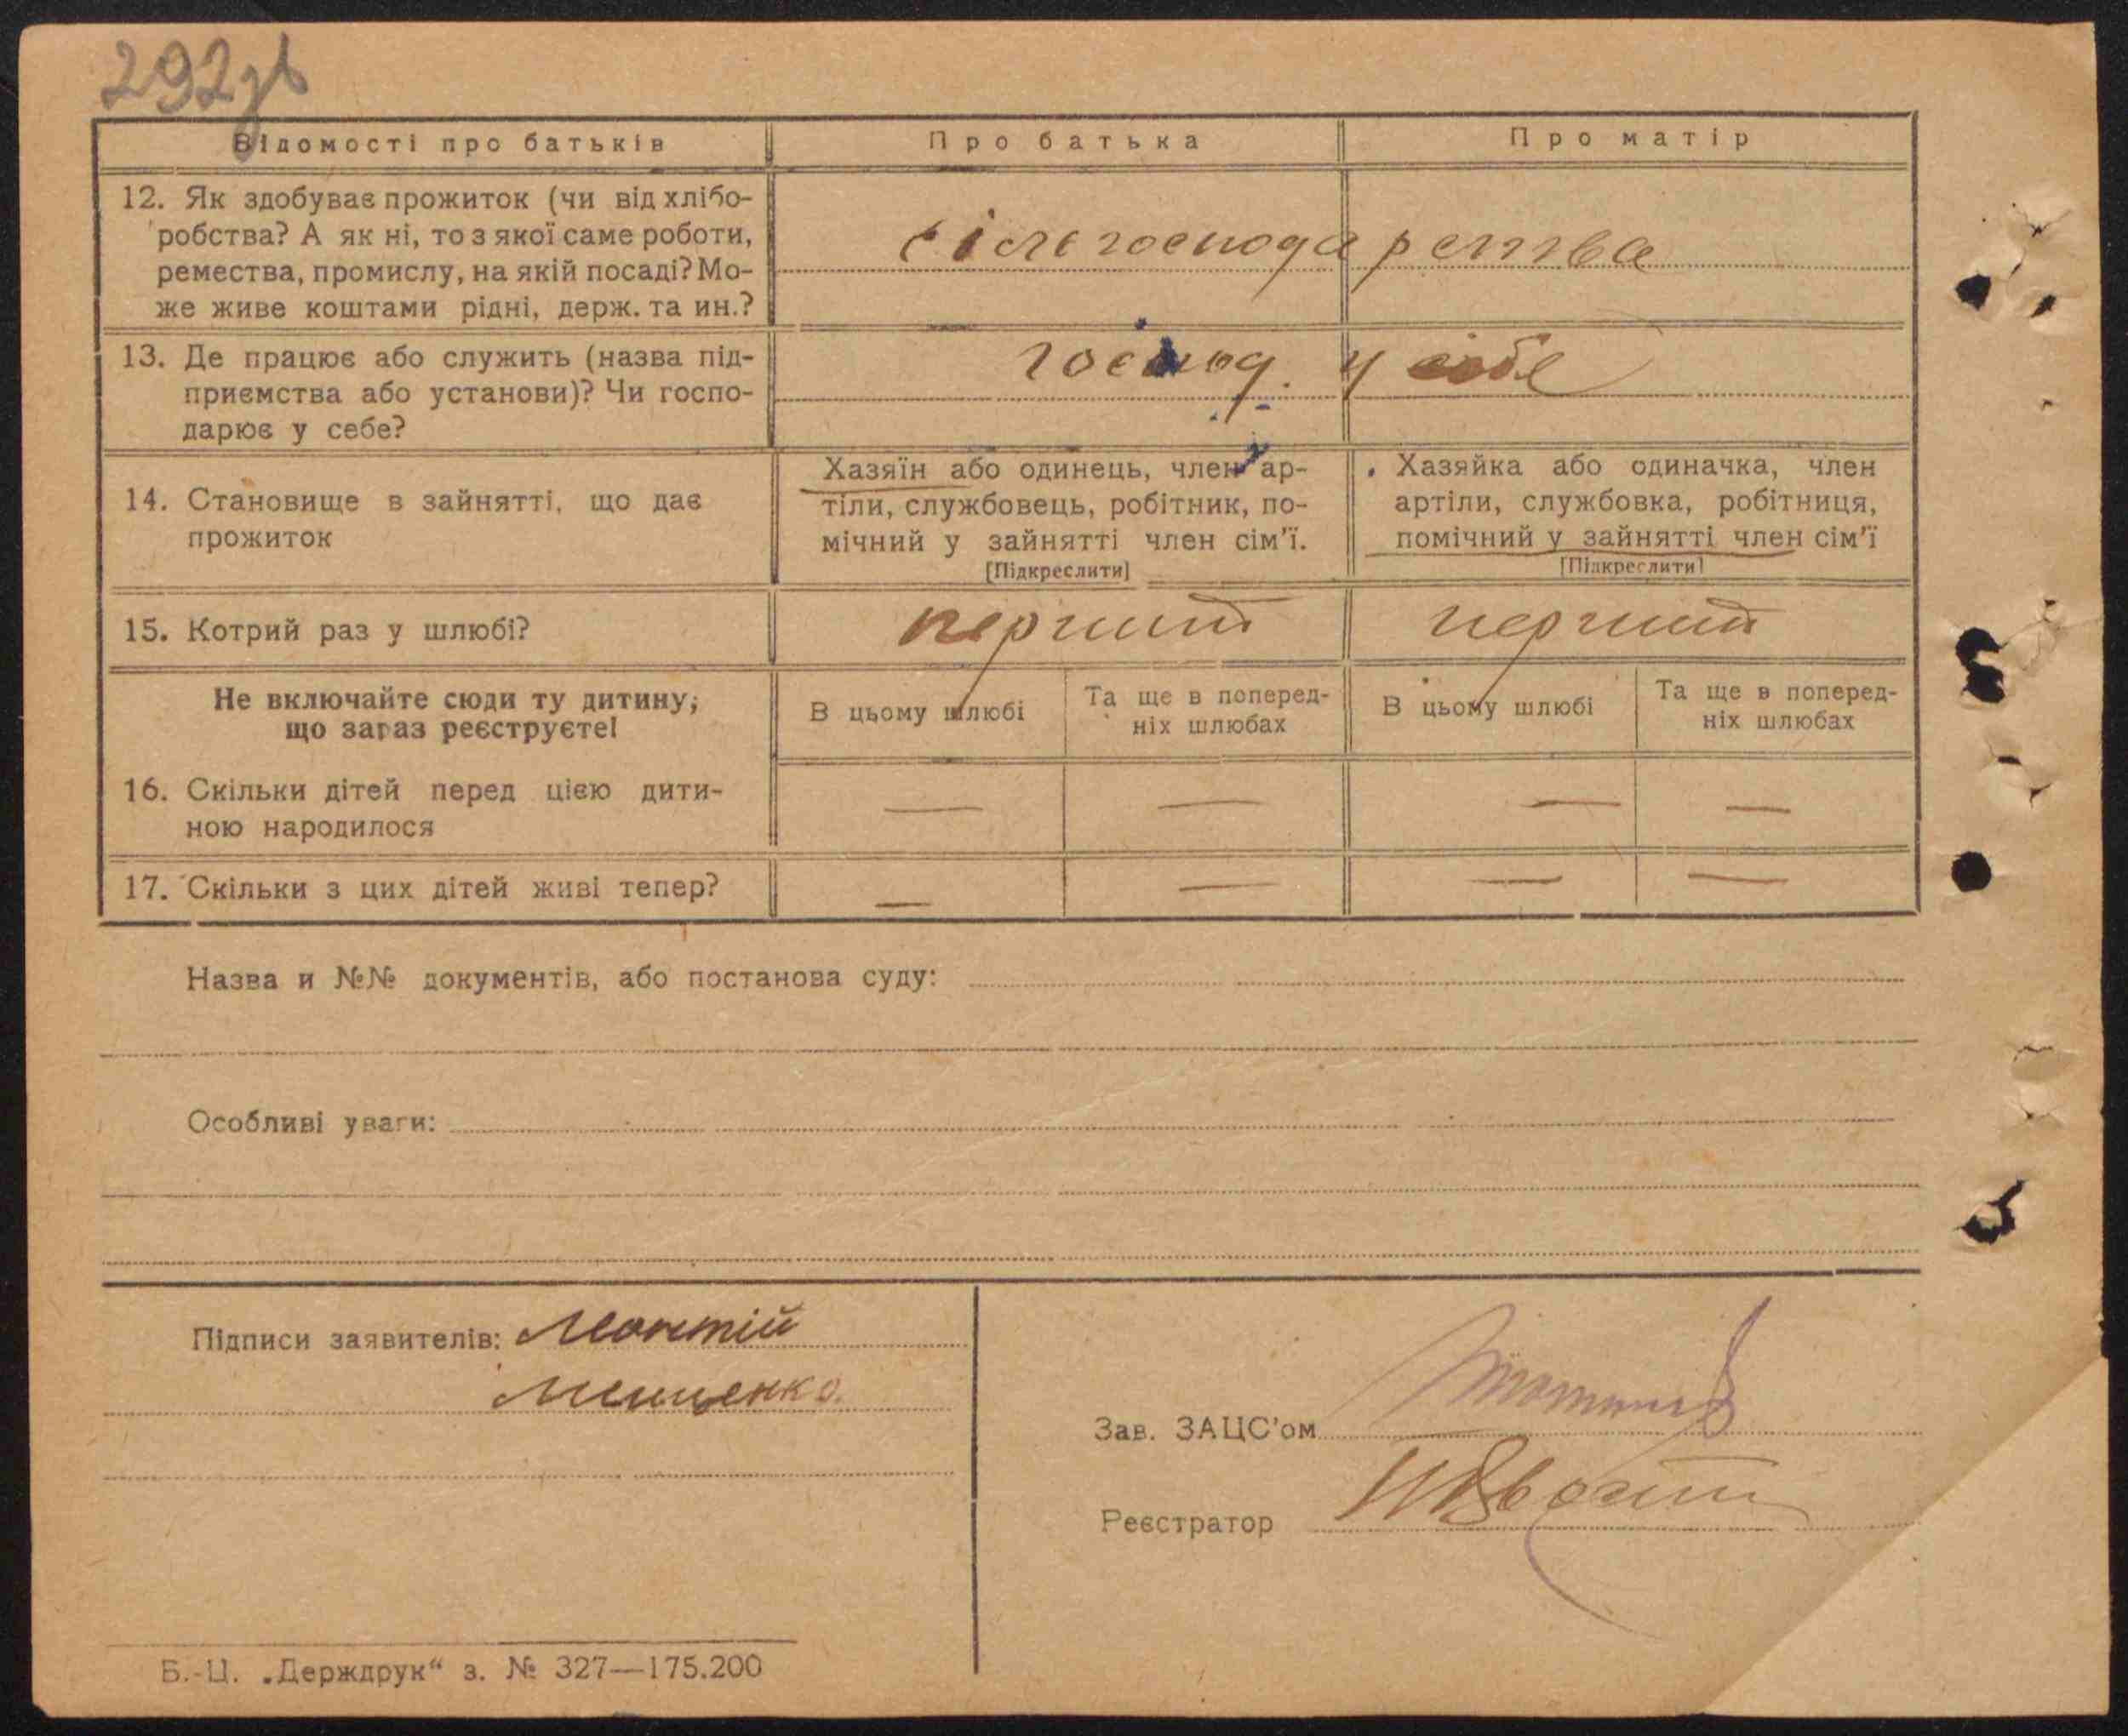 292зв
Відомості про батьків
Про батька
Про матір
12. Як здобуває прожиток (чи від хлібо-
робства? А як ні, то з якої саме роботи,
ремества, промислу, на якій посаді? Мо-
же живе коштами рідні, держ. та ин.?
сільгосподарства
13. Де працює або служить (назва під-
приємства або установи)? Чи госпо-
дарює у себе?
господ. у себе
14. Становище в зайнятті, що дає
прожиток
Хазяїн або одинець, член ар-
тіли, службовець, робітник, по-
мічний у зайнятті член сім'ї.
[Підкреслити]
Хазяйка або одиначка, член
артіли, службовка, робітниця,
помічний у зайнятті член сім'ї
[Підкреслити]
15. Котрий раз у шлюбі?
перший
перший
Не включайте сюди ту дитину,
що зараз реєструєте!
В цьому шлюбі
Та ще в поперед-
ніх шлюбах
В цьому шлюбі
Та ще в поперед-
ніх шлюбах
16. Скільки дітей перед цією дити-
ною народилося
— — — —
17. Скільки з цих дітей живі тепер?
— — — —
Назва и №№ документів, або постанова суду:
Особливі уваги:
Підписи заявителів:
Мищенко.
Зав. ЗАЦС'ом
Реєстратор
Б.-Ц. „Держдрук“ з. № 327—175.200